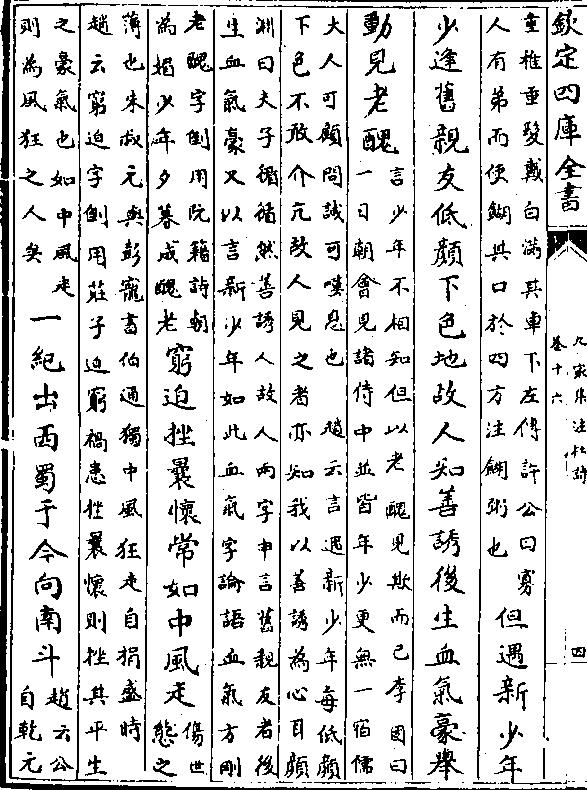 欽定四庫全書
九家集注杜詩
卷十六
四
垂稚垂髮戴白滿其車下左傳許公曰寡
人有弟而使餬其口於四方注餬粥也
但遇新少年
少逢舊親友低顔下色地故人知善誘後生血氣豪舉
動見老醜
言少年不相知但以老醜見欺而已李固曰
一日朝會見諸侍中並皆年少更無一宿儒
大人可顧問誠可嘆息也 趙云言遇新少年每低顔
下色不敢介亢故人見之者亦知我以善誘為心耳顔
淵曰夫子循循然善誘人故人兩字申言舊親友者後
生血氣豪又以言新少年如此血氣字論語血氣方剛
老醜字倒用阮籍詩朝
為媚少年夕暮成醜老
窮迫挫曩懷常如中風走
傷世
態之
薄也朱叔元與彭寵書伯通獨中風狂走自捐盛時
趙云窮迫字倒用莊子迫窮禍患挫曩懷則挫其平生
之豪氣也如中風走
則為風狂之人矣
一紀出西蜀于今向南斗
趙云公
自乾元